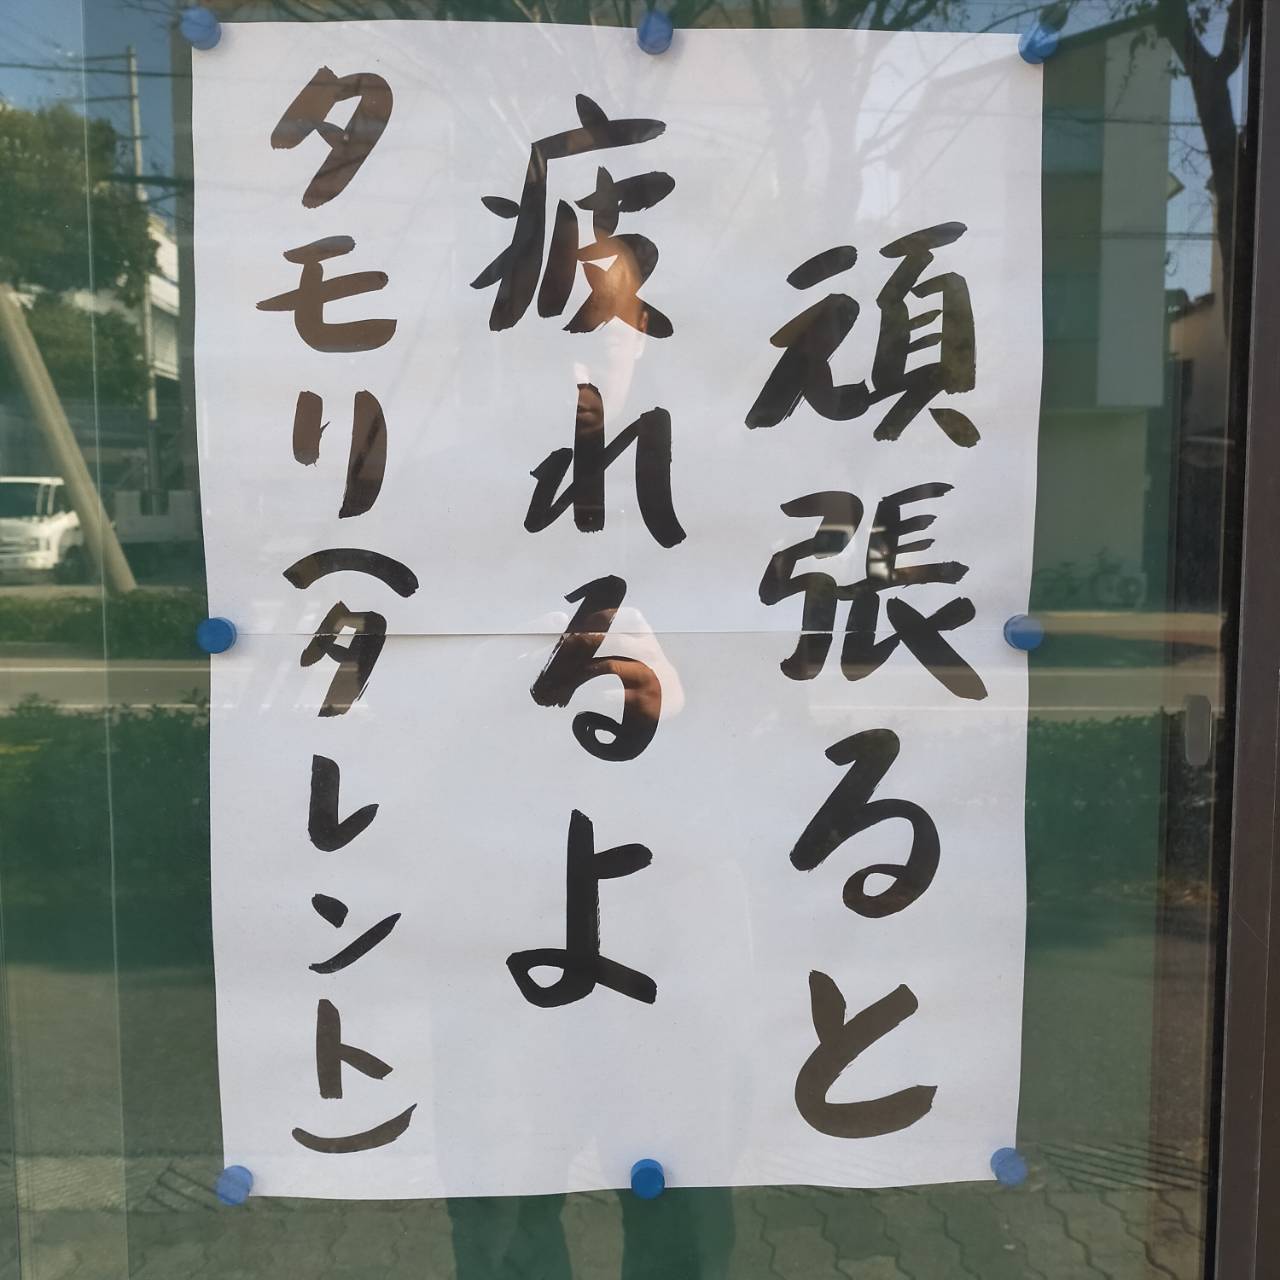 頑張ると
疲れるよ
タモリ(タレント)